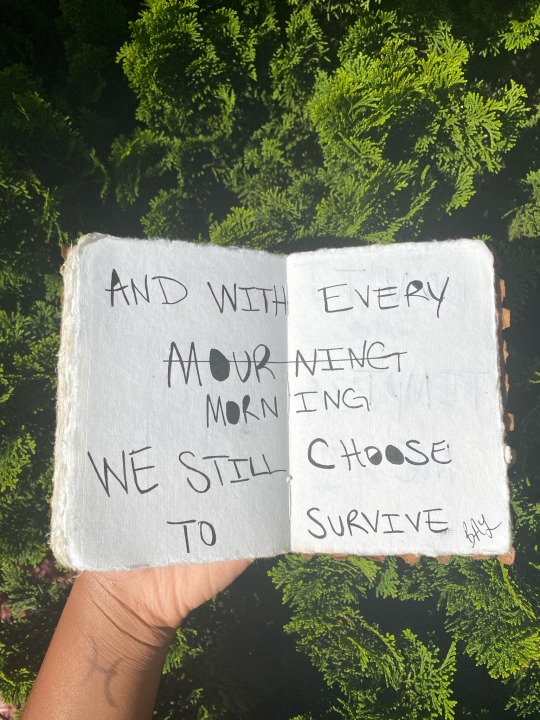 AND WITH EVERY
MOURNING
MORNING
WE STILL CHOOSE
TO SURVIVE